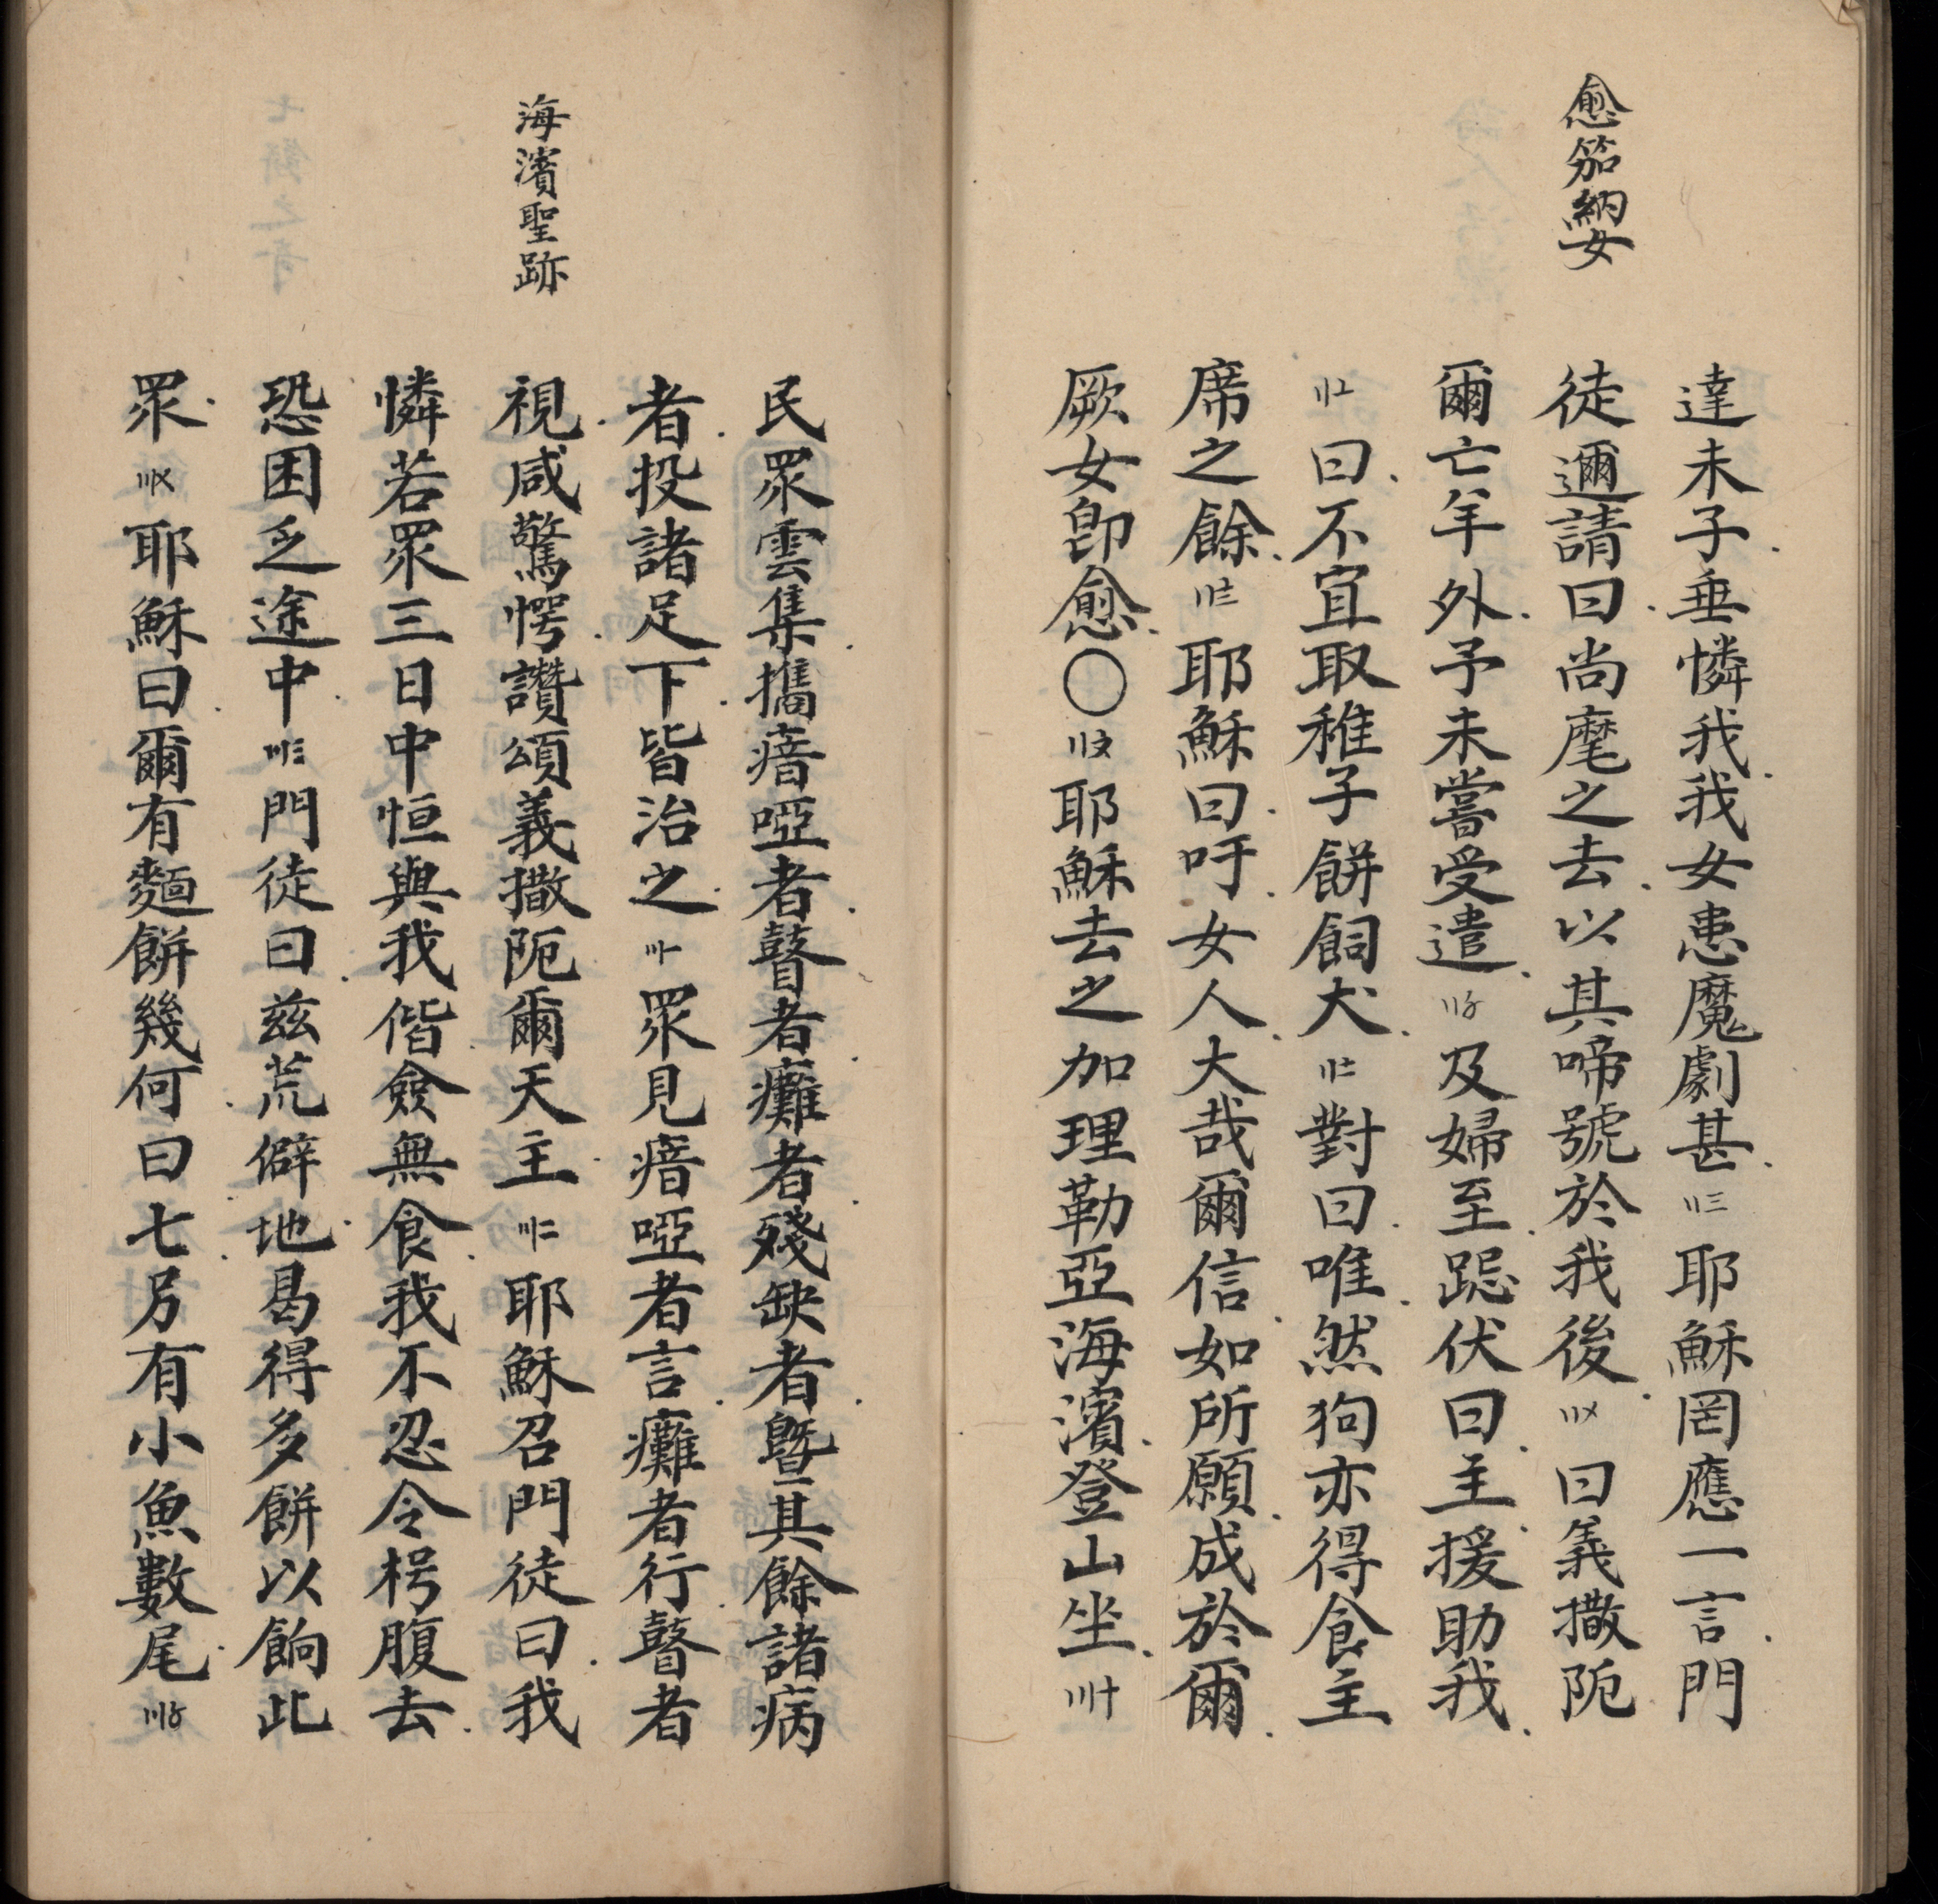 愈笳納女
達未子垂憐我我女患魔劇甚〢三耶穌罔應一言門
徒邇請曰尚麾之去以其啼號於我後〢〤曰義撒阨
爾亡羊外予未嘗受遣〢〥及婦至跽伏曰主援助我
〢〦曰不宜取稚子餅飼犬〢〧對曰唯然狗亦得食主
席之餘〢〨耶穌曰吁女人大哉爾信如所願成於爾
厥女卽愈〇〢〩耶穌去之加理勒亞海濱登山坐〣十
海濱聖跡
民眾雲集攜瘖啞者瞽者癱者殘缺者曁其餘諸病
者投諸足下皆治之〣〡眾見瘖啞者言癱者行瞽者
視咸驚愕讚頌義撒阨爾天主〣二耶穌召門徒曰我
憐若眾三日中恒與我偕僉無食我不忍令枵腹去
恐困乏途中〣三門徒曰茲荒僻地曷得多餅以餉此
眾〣〤耶穌曰爾有麵餅幾何曰七另有小魚數尾〣〥